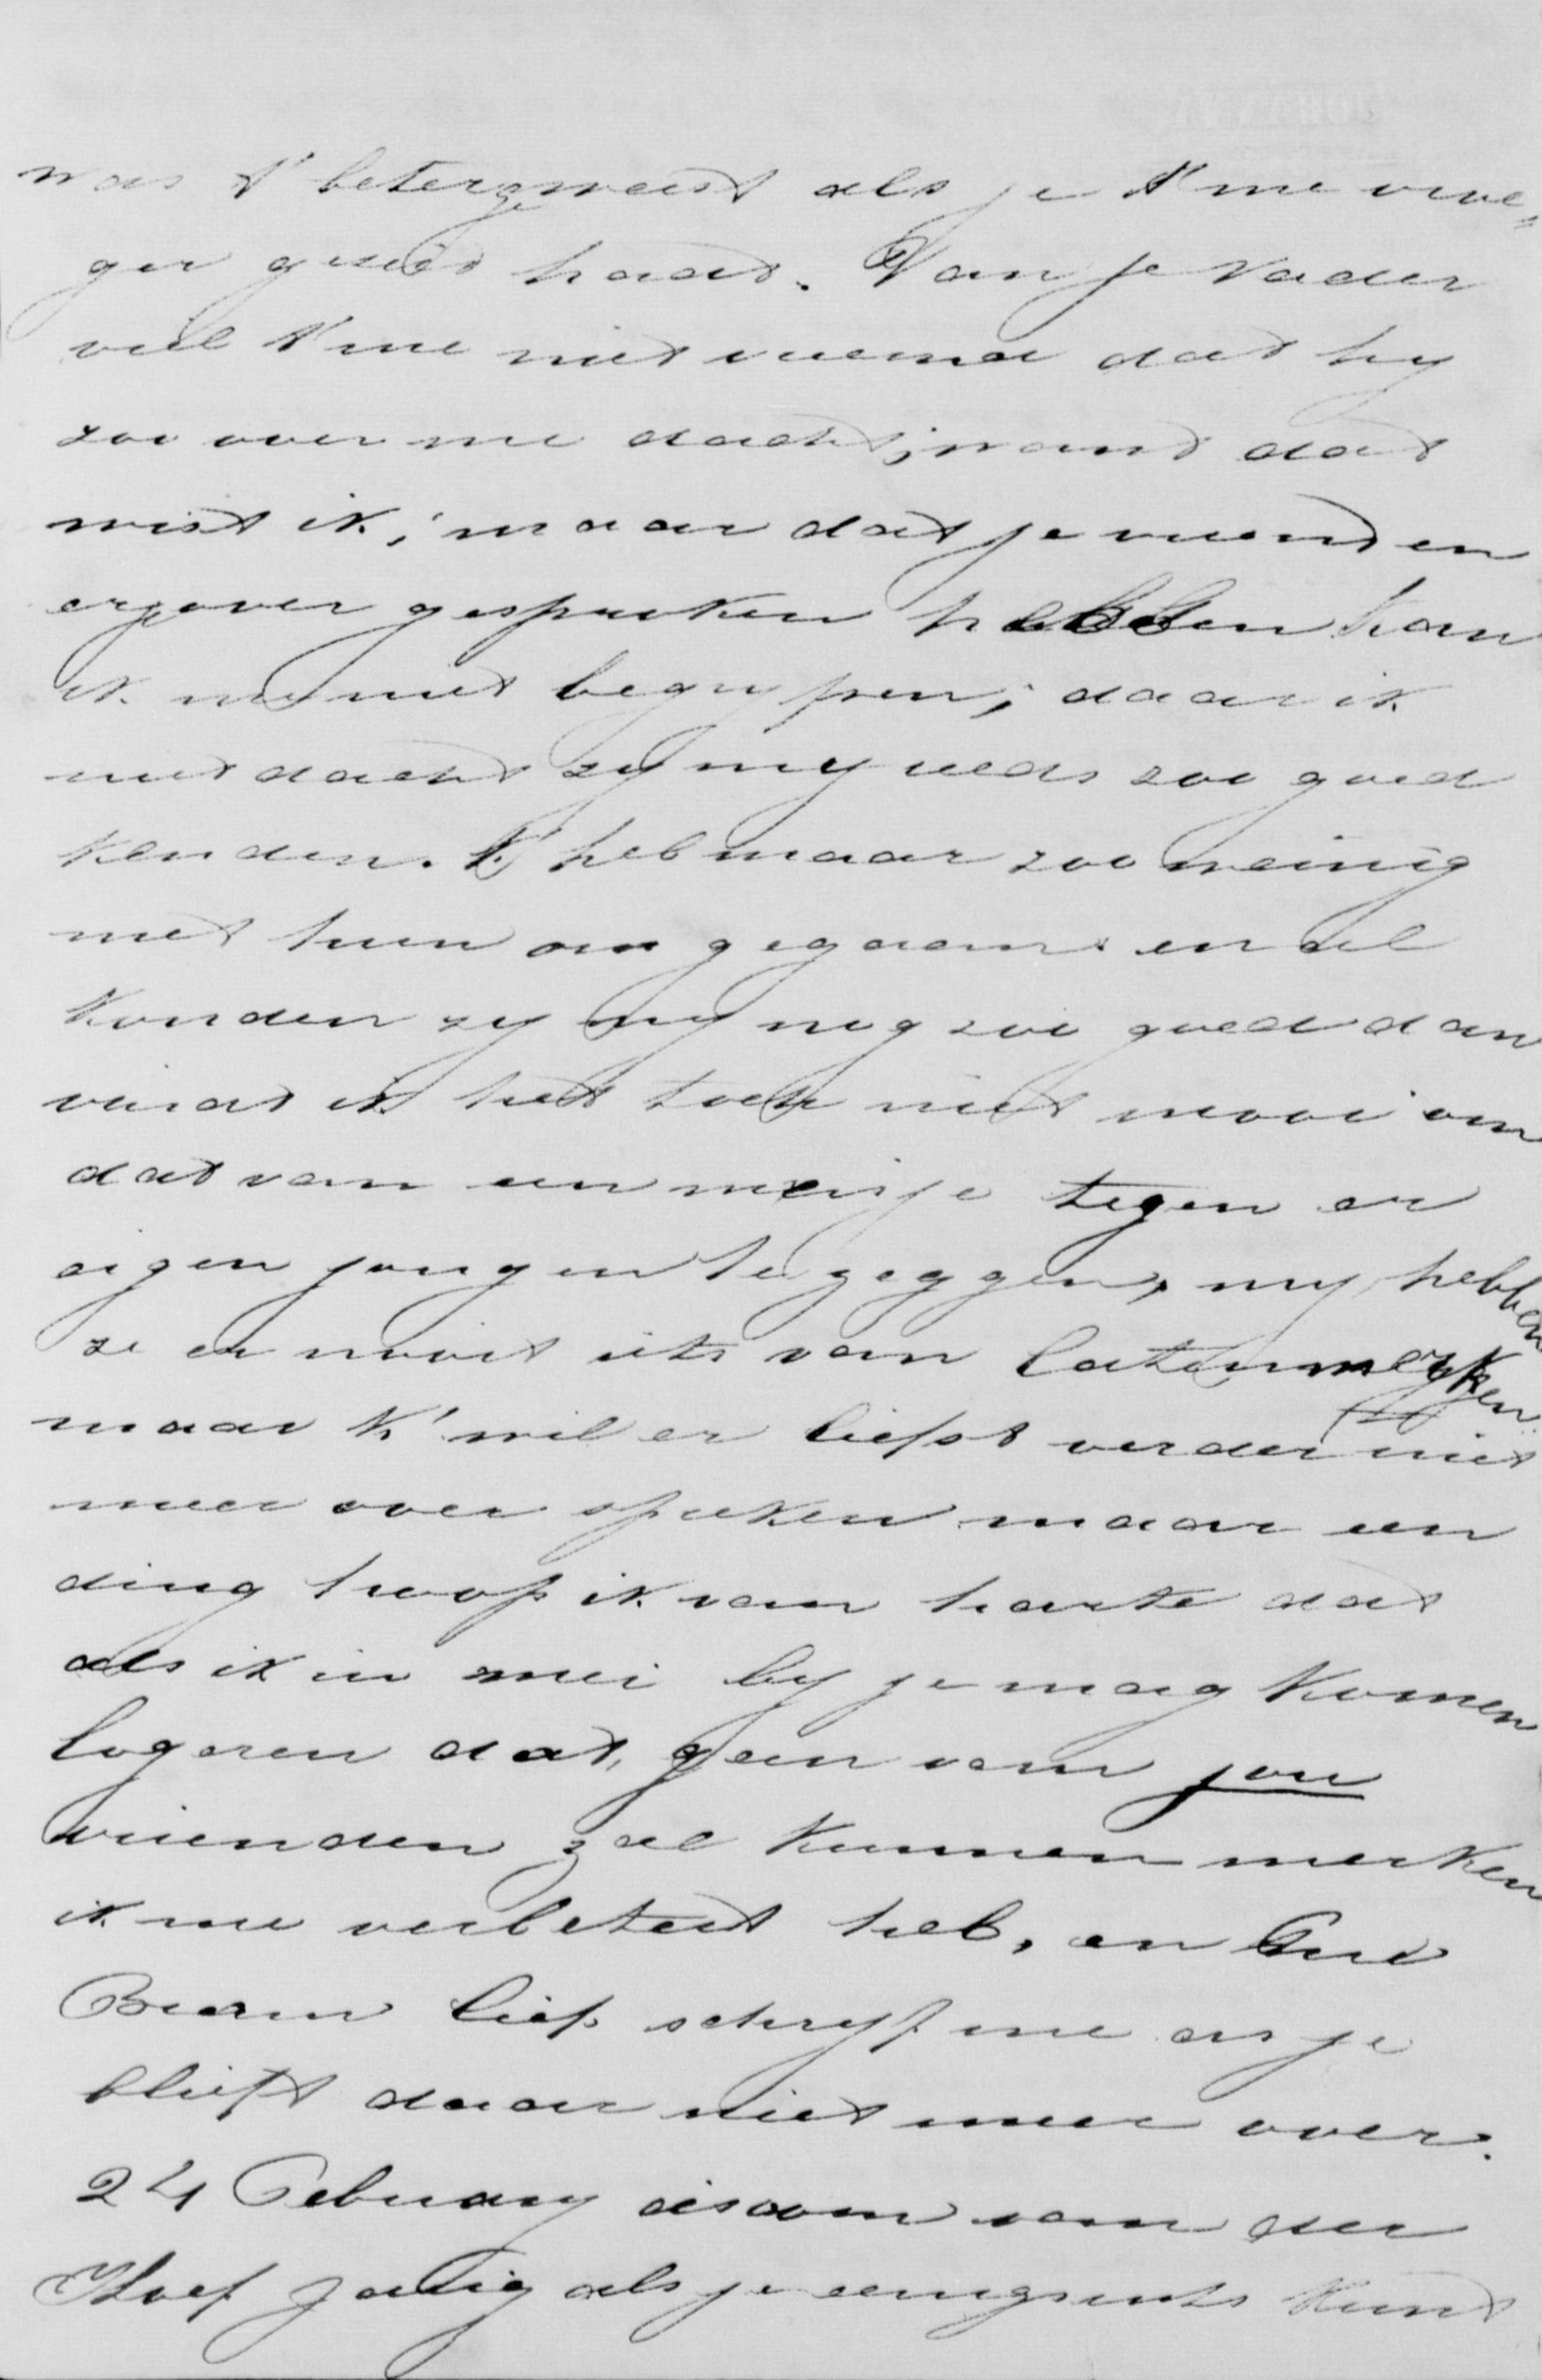 was 't beter geweest als je 't me vroe=
ger gezeid hadt. Van je Vader
viel 't me niet vreemd dat hy
zoo over me dacht, want dat
wist ik, maar dat je vrienden
er over gesproken hebben kan
ik my niet begrypen; daar ik
niet dacht zy my reeds zoo goed
kenden. K' heb maar zoo weinig
met hun om gegaan en al
konden zy my nog zoo goed dan
vind ik het toch niet mooi om
dat van een meisje tegen er
eigen jongen te zeggen, my hebben
ze er nooit iets van laten merken
maar k' wil er liefst verder niet
meer over spreken maar een
ding hoop ik van harte dat
als ik in mei by je mag komen
logeren dat, geen van jou
vrienden zal kunnen merken
ik me verbeterd heb, en
Bram lief schryf me as je
blieft daar niet meer over.
24 Februay is oom van der
Hoef jarig als je eenigzints kunt